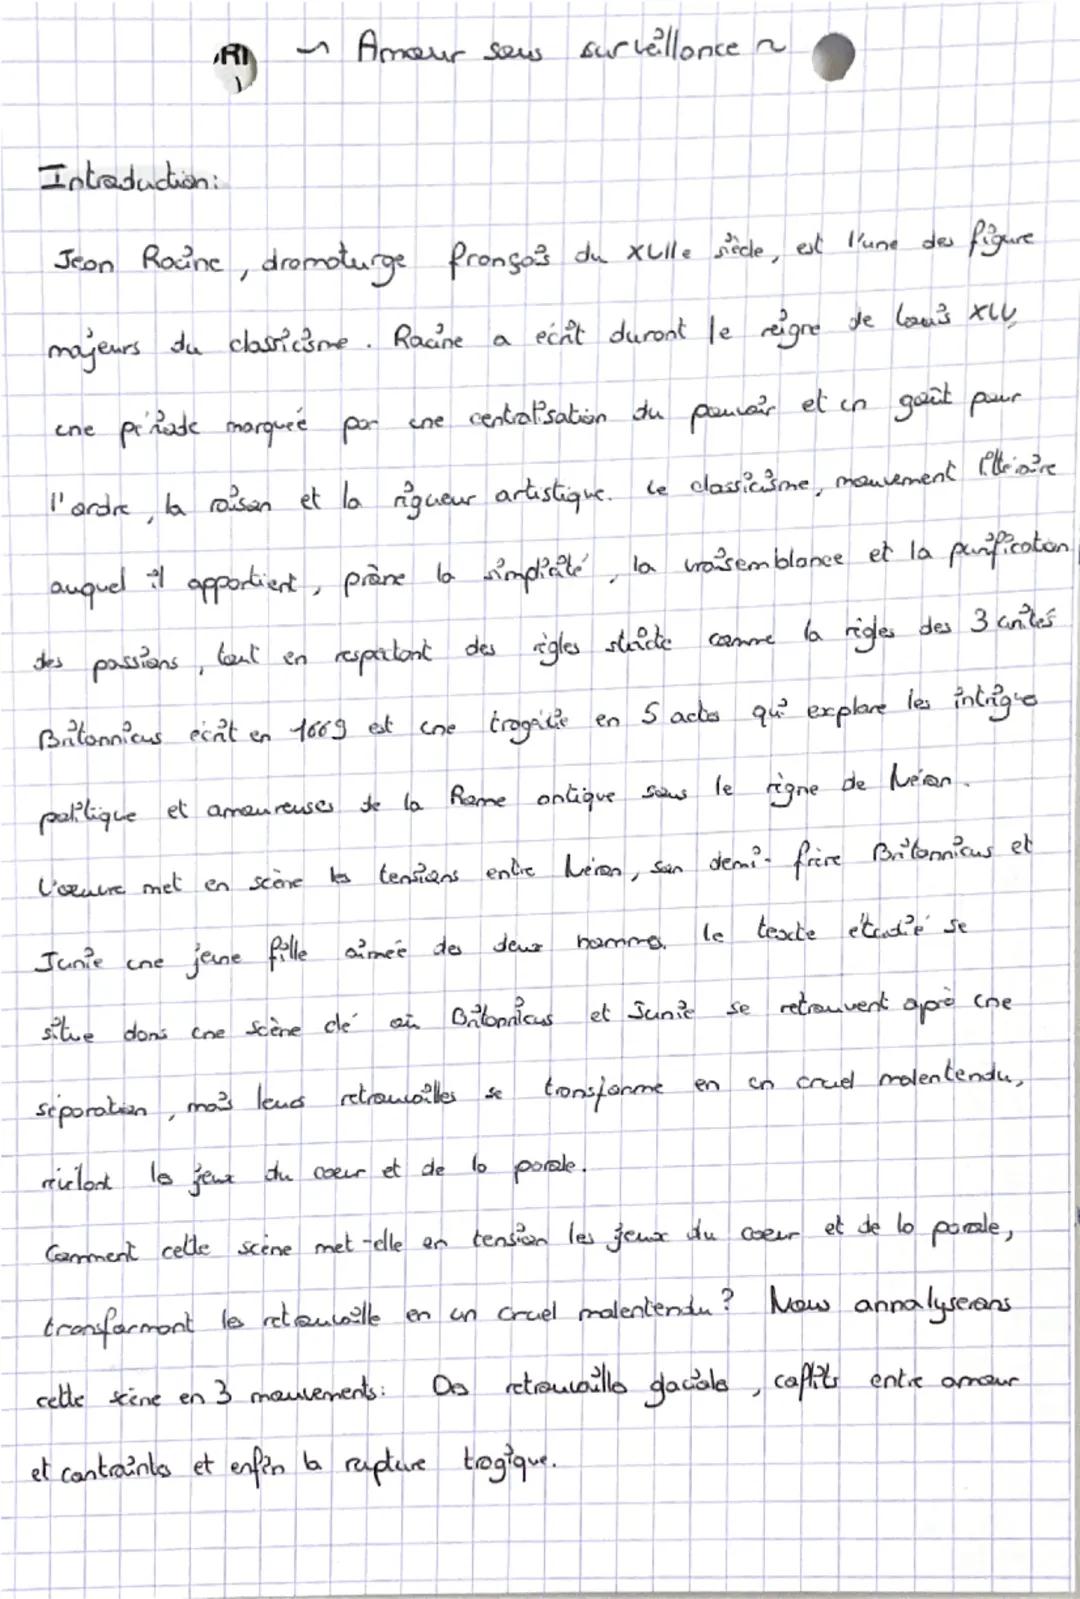 RI
~ Amour sous surveillance ~
Introduction:
Jean Racine, dramaturge français du XVIIe siècle, est l'une des figure
majeurs du classicisme. Racine a écrit durant le reigne de Louis XIV,
une période marqueé par une centralisation du pouvoir et un goût pour
l'ordre, la raison et la rigueur artistique. Le classicisme, mouvement littéraire
auquel il appartient, prône la simplicité, la vraisemblance et la purification
des passions, tout en respectant des règles stricte comme la règles des 3 unités
Britannicus écrit en 1669 est une tragédie en 5 actes qui explore les intrigues
politique et amoureuses de la Rome antique sous le règne de Néron.
L'œuvre met en scène les tensions entre Néron, son demi-frère Britannicus et
Junie une jeune fille aimeé des deux hommes. Le texte étudié se
situe dans une scène clé où Britannicus et Junie se retrouvent après une
séparation, mais leurs retrouvailles se transforme en un cruel malentendu,
mêlant les jeux du coeur et de la parole.
Comment cette scène met-elle en tension les jeux du coeur et de la parole,
transformant les retrouvaille en un cruel malentendu? Nous annalyserons
cette scène en 3 mouvements: Des retrouvailles glaciales, coflits entre amour
et contraintes et enfin la rupture tragique.